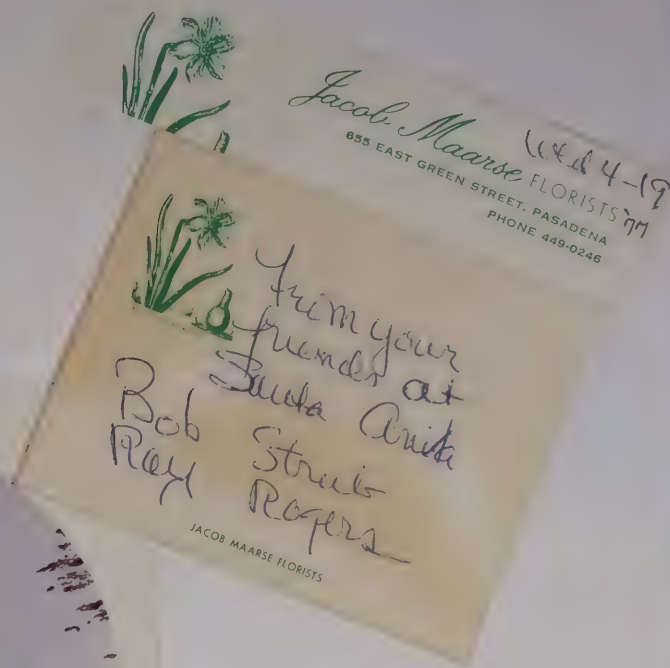 Jacob Maarse FLORISTS
655 EAST GREEN STREET, PASADENA
PHONE 449-0246
Wed 4-19
'77
From your
friends at
Santa Anita
Bob Strub
Ray Rogers
JACOB MAARSE FLORISTS